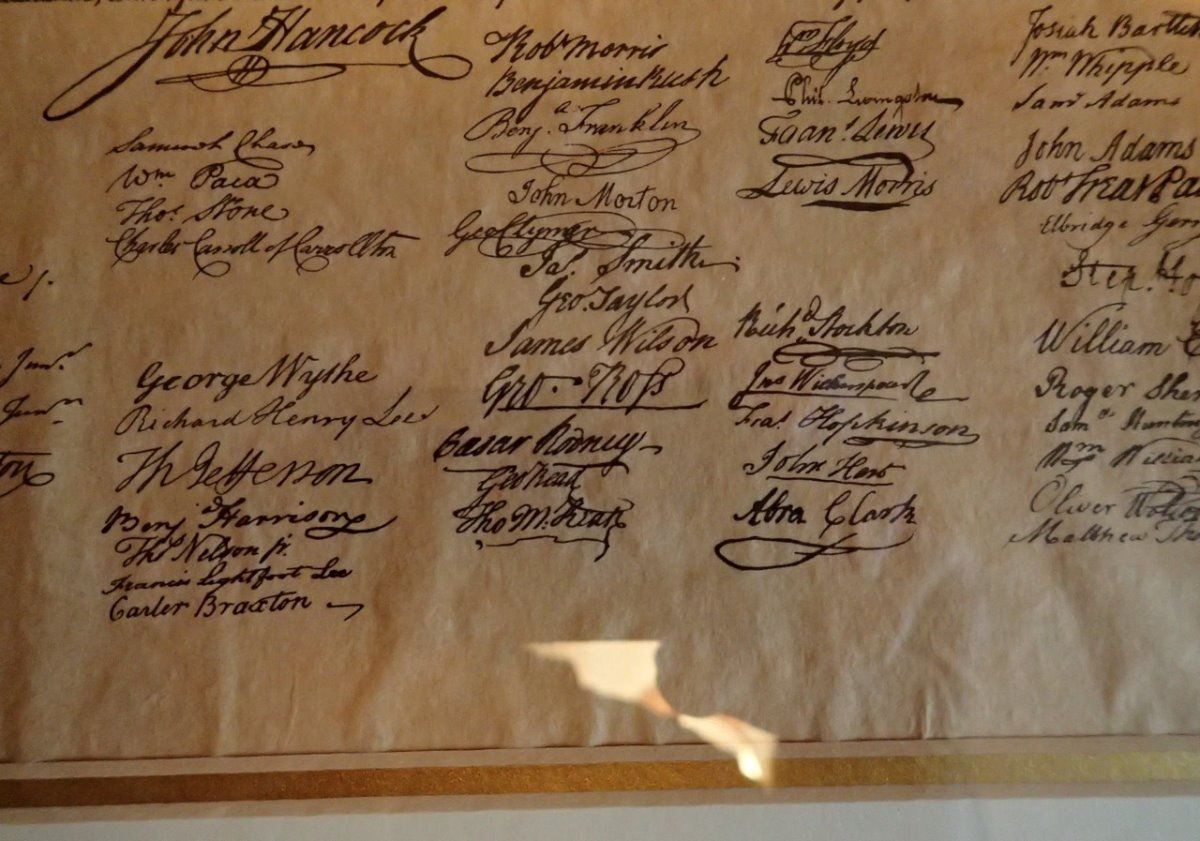 John Hancock
Samuel Chase
Wm Paca
Thos. Stone
Charles Carroll of Carrollton
George Wythe
Richard Henry Lee
Th Jefferson
Benj Harrison
Thos Nelson jr.
Francis Lightfoot Lee
Carter Braxton
Robt Morris
Benjamin Rush
Benja. Franklin
John Morton
Geo Clymer
Jas. Smith
Geo. Taylor
James Wilson
Geo. Ross
Caesar Rodney
Geo Read
Tho M. Kean
Wm Floyd
Phil. Livingston
Frans. Lewis
Lewis Morris
Richd. Stockton
Jno Witherspoon
Fras. Hopkinson
John Hart
Abra Clark
Josiah Bartlet
Wm Whipple
Saml Adams
John Adams
Robt Treat Pa
Elbridge Gerr
Step. Ho
William E
Roger Sher
Samel Hunting
Wm Willia
Oliver Wolco
Matthew Tho
Junr.
Junr.
ton